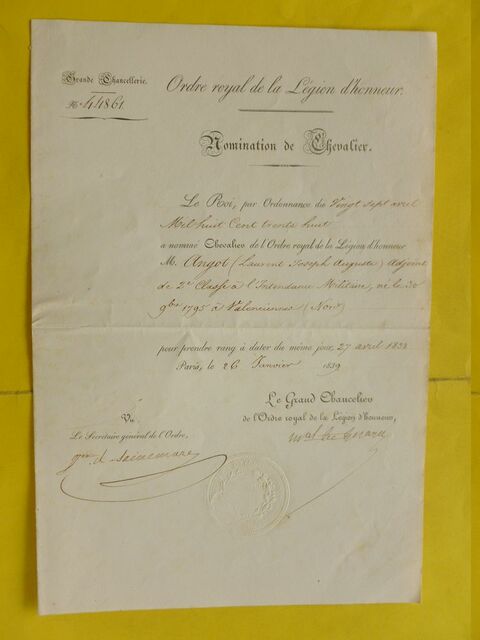 Grande Chancellerie.
N.º 44861
Ordre royal de la Légion d'honneur.
Nomination de Chevalier.
Le Roi, par Ordonnance du Vingt sept avril
Mil huit Cent trente huit
a nommé Chevalier de l'Ordre royal de la Légion d'honneur
M. Angot (Laurent Joseph Auguste) Adjoint
de 2e Classe à l'Intendance Militaire, né le 30
9bre 1795 à Valenciennes (Nord)
pour prendre rang à dater du même jour, 27 avril 1838
Paris, le 26 Janvier 1839
Le Grand Chancelier
de l'Ordre royal de la Légion d'honneur,
Mal Cte Gérard
Vu
Le Secrétaire général de l'Ordre,